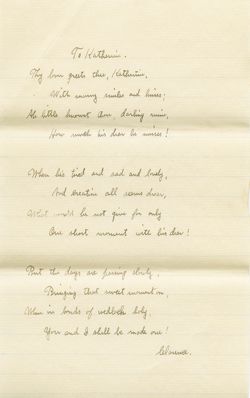 To Katherine.
Thy love greets thee, Katherine,
With many smiles and kisses;
Ah little knowest thou, darling mine,
How much his dear he misses!
When he's tired and sad and lonely,
And creation all seems drear,
What would he not give for only
One short moment with his dear!
But the days are passing slowly,
Bringing that sweet moment on,
When in bonds of wedlock holy,
You and I shall be made one!
Clarence.